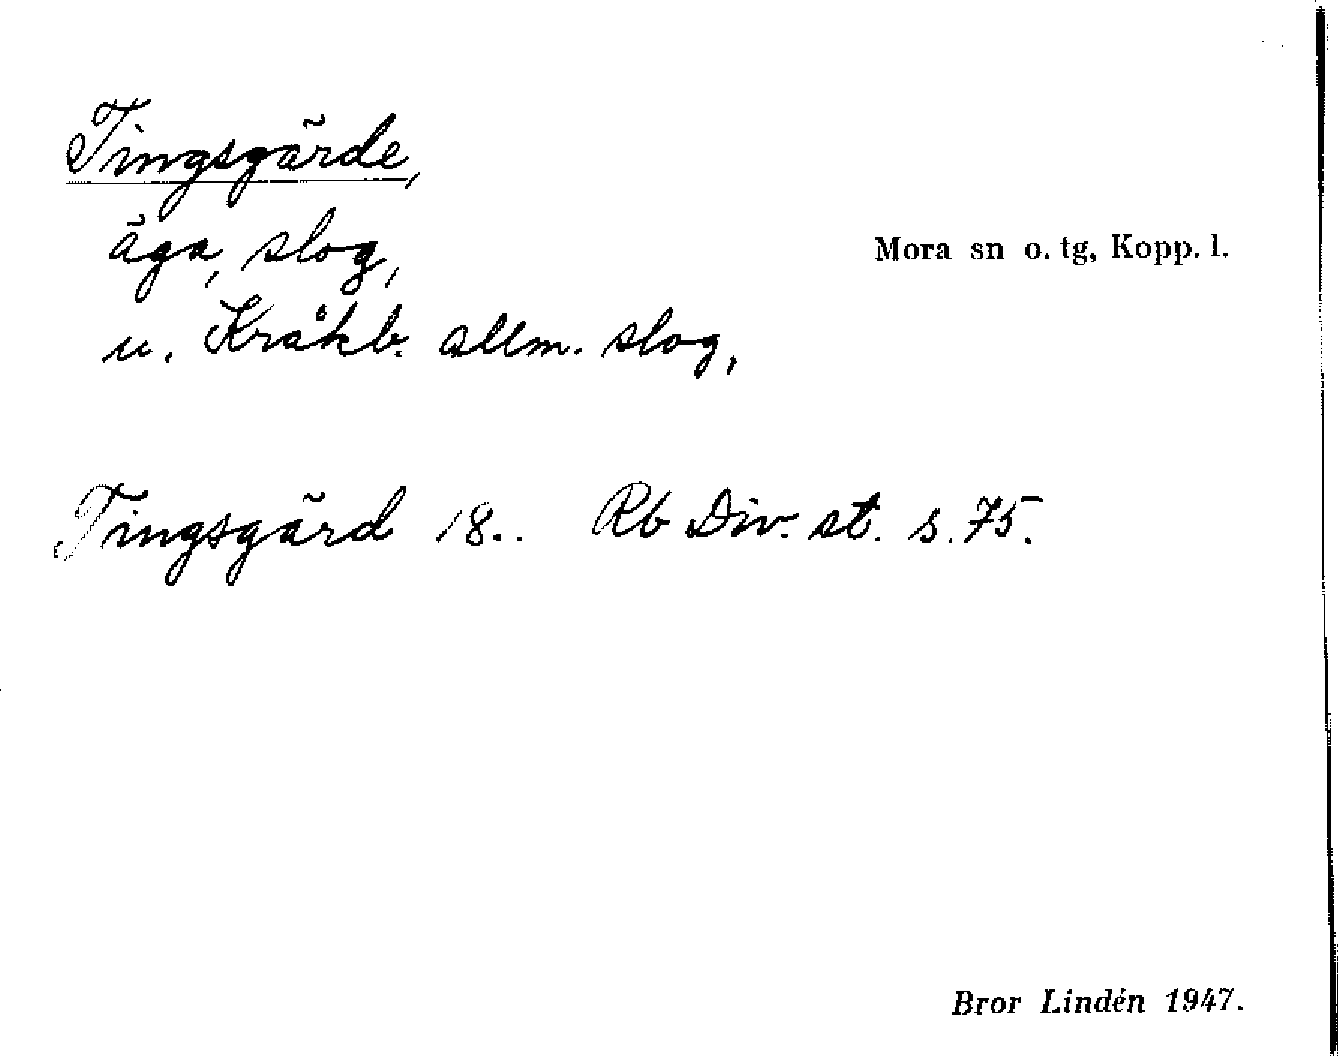 Tingsgärde,
äga, slog,
Mora sn o. tg, Kopp. l.
u. Kråkb. allm. slog,
Tingsgärd 18.. Rb Div. st. s. 75.
Bror Lindén 1947.